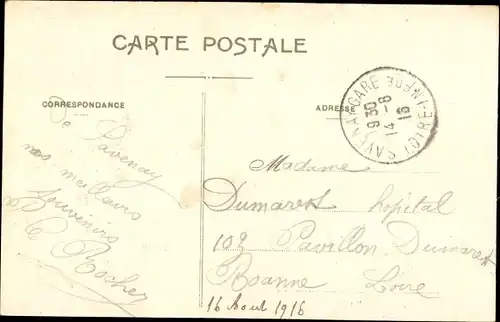 CARTE POSTALE
CORRESPONDANCE
De Savenay
nos meilleurs
Souvenirs
C Rocher
ADRESSE
SAVENAY-GARE LOIRE-INFRE
9 30
14 - 8
16
Madame
Dumarest hopital
102 Pavillon Dumarest
Roanne Loire
16 Aout 1916